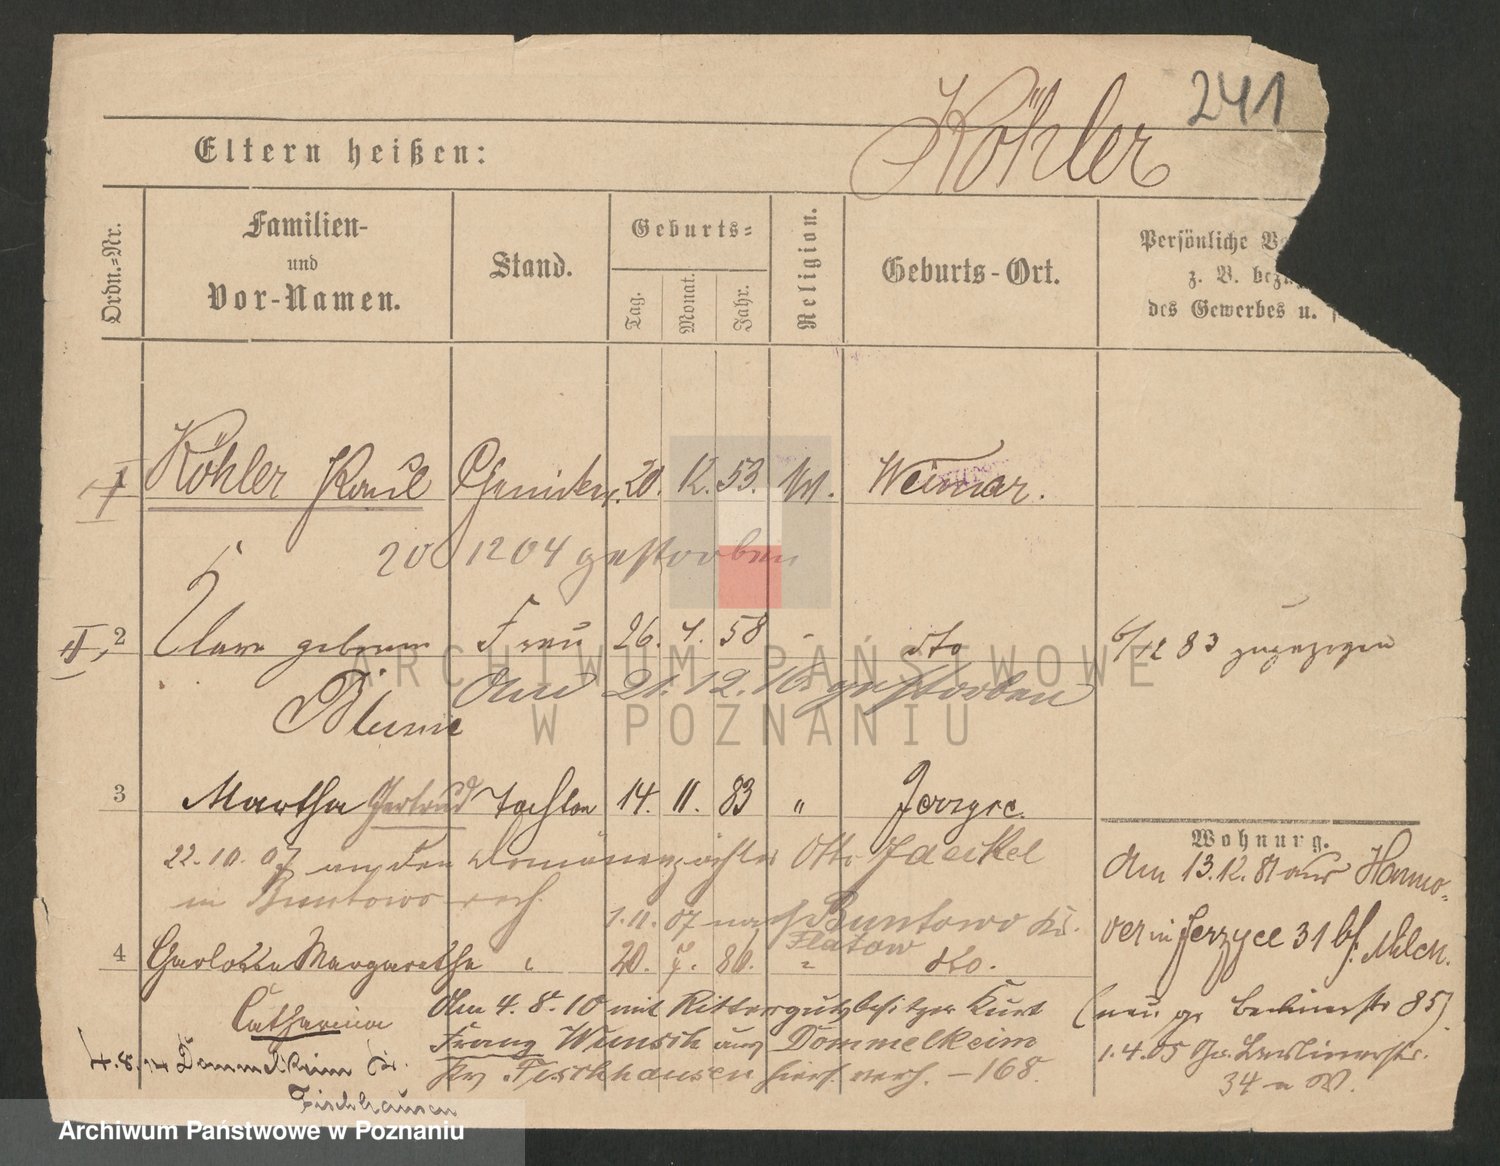 241
Köhler
Eltern heißen:
Ordn.-Nr.
Familien-
und
Vor-Namen.
Stand.
Geburts-
Tag.
Monat.
Jahr.
Religion.
Geburts-Ort.
Persönliche
z. B.
des Gewerbes u.
I
Köhler Paul Chemiker 20. 12. 53. Weimar.
20 12 04 gestorben
II 2 Clara geborene Frau 26. 58 dto 6/12 83 zugezogen
Am 21.12.16 gestorben
Blume
3 Martha Gertrud Tochter 14. 11. 83 " Jerzyce.
22.10.07 an den Domänenpächter Otto Jaeckel
in Buntowo verh.
1.11.07 nach Buntowo Kr.
Flatow
4 Charlotte Margarethe " 20. 7. 86. " dto.
Catharina
Am 4.8.10 mit Rittergutsbesitzer Kurt
Franz Wunsch aus Dommelkeim
Kr. Fischhausen hier verh. - 168.
4.8.14 Dommelkeim Kr.
Fischhausen
Wohnung.
Am 13.12.81 aus Hanno-
ver in Jerzyce 31 bei Milch.
(neu Berlinerstr 85)
1.4.05 Gr. Berlinerstr.
34 a W.
ARCHIWUM PAŃSTWOWE
W POZNANIU
Archiwum Państwowe w Poznaniu